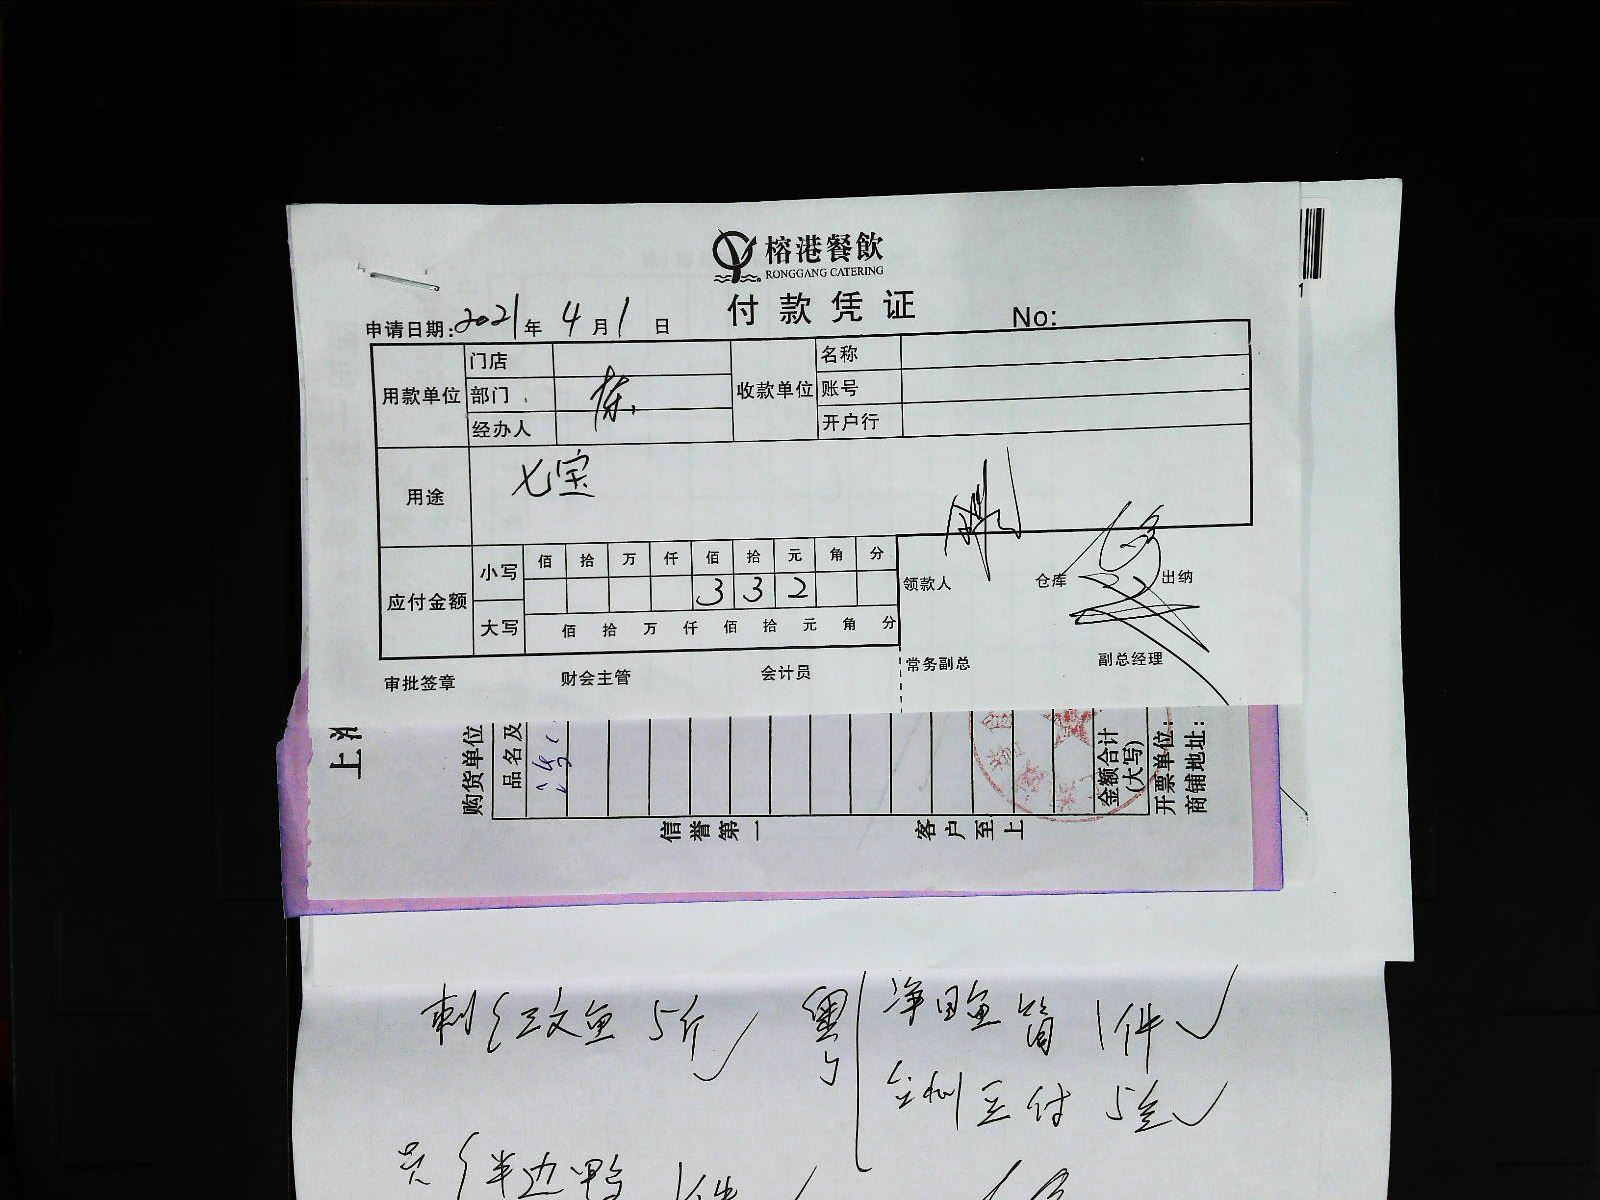 榕港餐飲
RONGGANG CATERING
付款凭证
申请日期:2021年4月1日
No:
用款单位
门店
部门
经办人
收款单位
名称
账号
开户行
用途
七宝
应付金额
小写
佰 拾 万 仟 佰 拾 元 角 分
3 3 2
大写
佰 拾 万 仟 佰 拾 元 角 分
领款人
仓库
出纳
审批签章
财会主管
会计员
常务副总
副总经理
上
购货单位
品名及
信誉第一
客户至上
金额合计
(大写)
开票单位:
商铺地址:
文鱼 5斤
粤
1件
5盒
半边鸭 1件